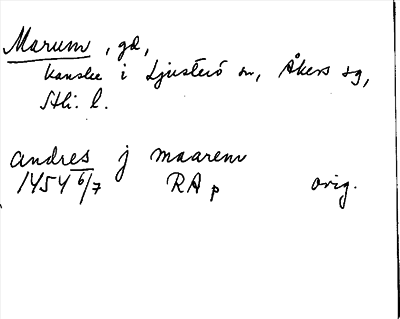 Marum, gd,
kanske i Ljusterö sn, Åkers sg,
Sthl: l.
andres j maarem
1454 6/7 RA p orig.